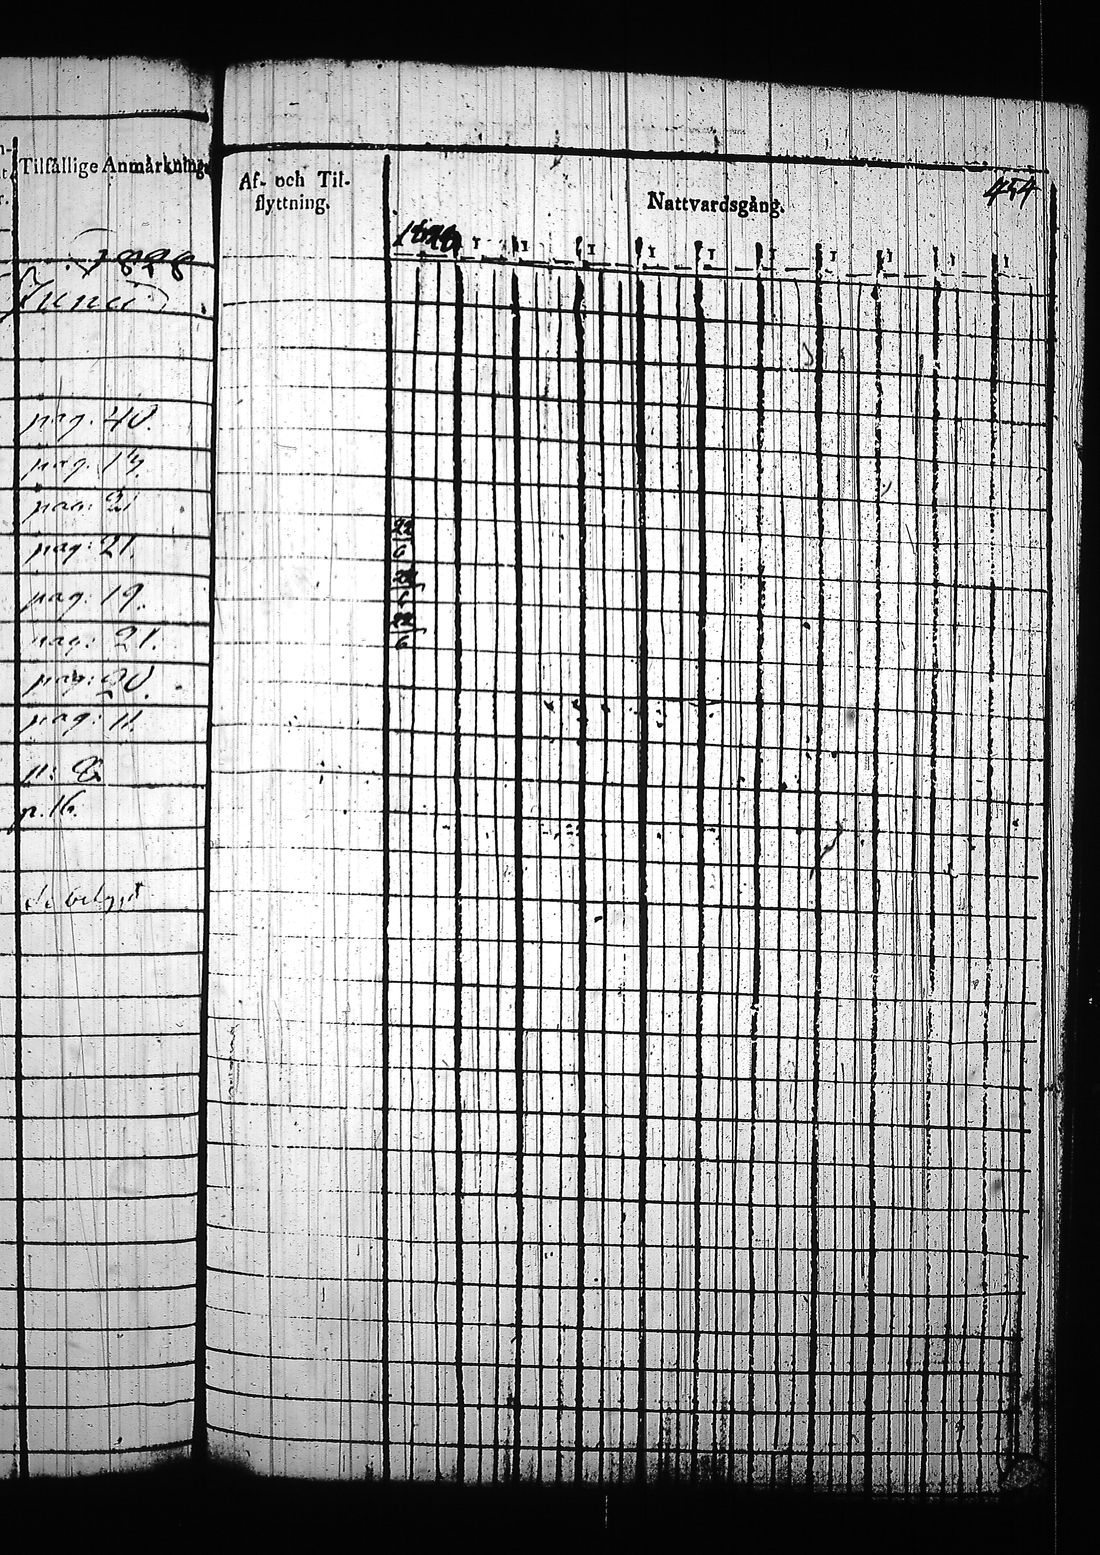 Tilfällige Anmärkning
1828
Junii
pag. 40.
pag. 19.
pag. 21
pag: 21.
pag: 19.
pag: 21.
pag: 20.
pag: 11.
p: 8
p. 16.
Af- och Til-
flyttning.
Nattvardsgång.
454
1 1 1 1 1 1 1 1 1 1
22
6
22
6
22
6